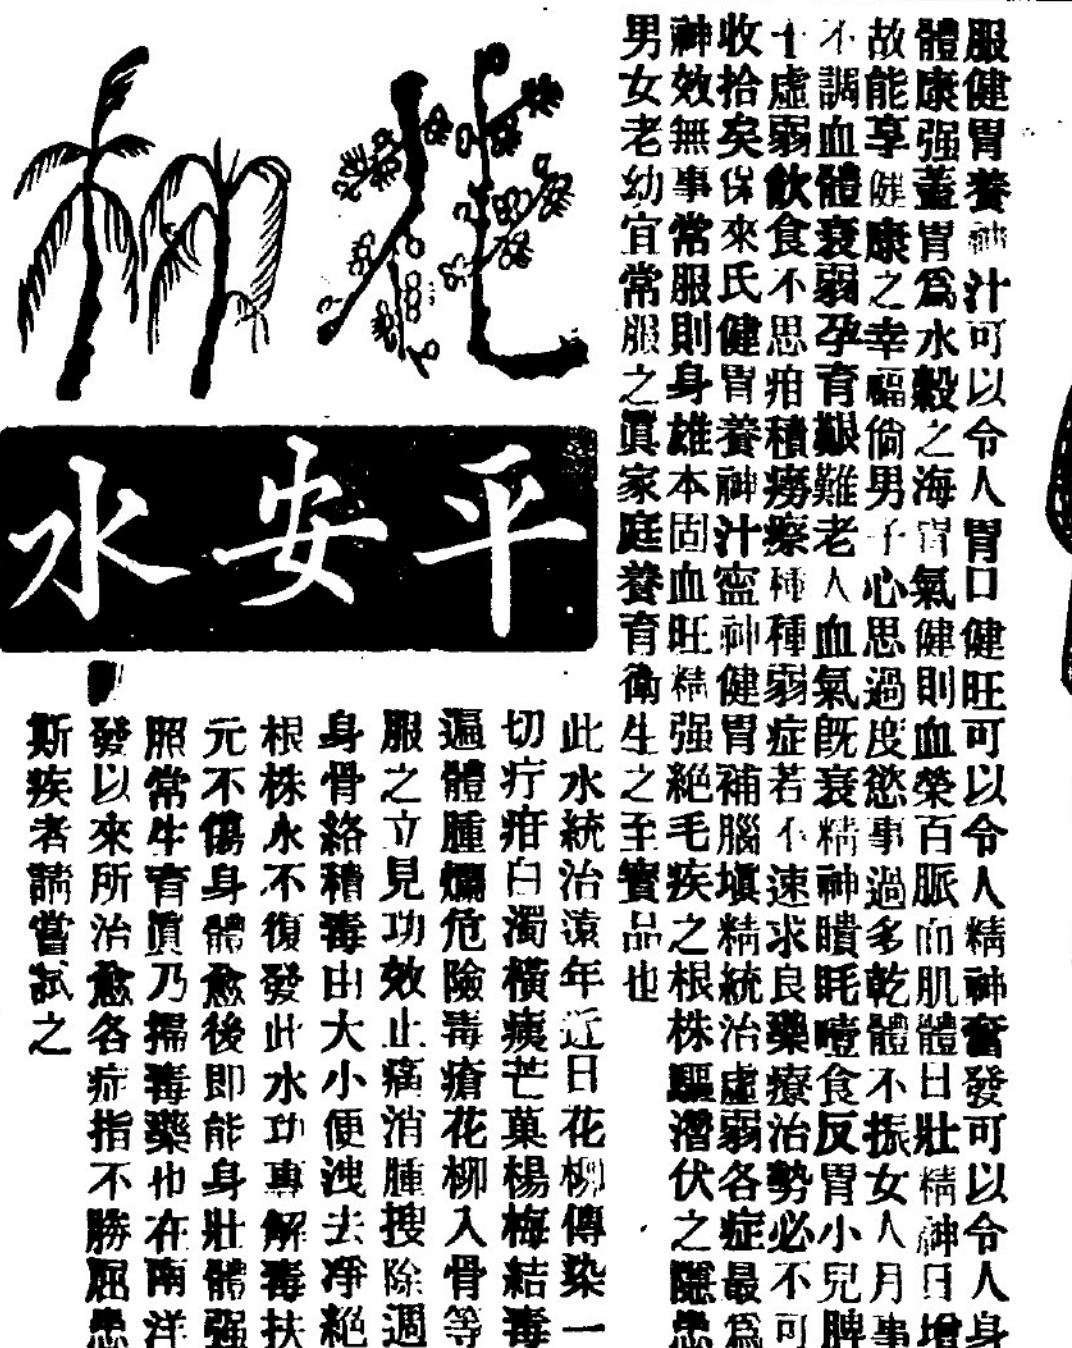 服健胃養神汁可以令人胃口健旺可以令人精神奮發可以令人身
體康强蓋胃爲水穀之海胃氣健則血榮百脈而肌體日壯精神日增
故能享健康之幸福倘男子心思過度慾事過多乾體不振女人月事
不調血體衰弱孕育艱難老人血氣既衰精神瞶眊噎食反胃小兒脾
十虛弱飲食不思疳積癆瘵種種弱症若不速求良藥療治勢必不可
收拾矣保來氏健胃養神汁寧神健胃補腦塡精統治虛弱各症最爲
神效無事常服則身雄本固血旺精强絕毛疾之根株驅潛伏之隱患
男女老幼宜常服之眞家庭養育衛生之至寶品也
花柳
平安水
此水統治遠年近日花柳傳染一
切疔疳白濁橫痍芒菓楊梅結毒
遍體腫爛危險毒瘡花柳入骨等
服之立見功效止痛消腫搜除週
身骨絡積毒由大小便洩去凈絕
根株永不復發此水功專解毒扶
元不傷身體愈後即能身壯體强
照常生育眞乃掃毒藥也在南洋
發以來所治愈各症指不勝屈患
斯疾者請嘗試之